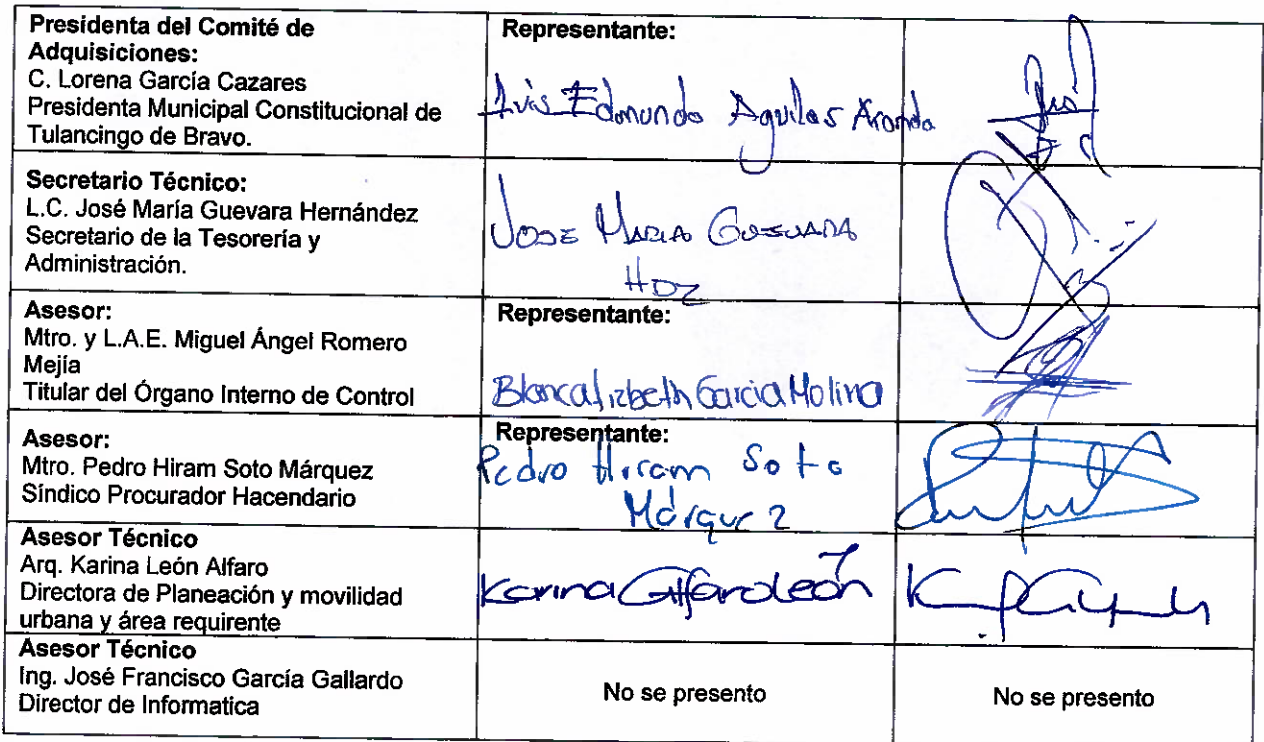 Presidenta del Comité de
Adquisiciones:
C. Lorena García Cazares
Presidenta Municipal Constitucional de
Tulancingo de Bravo.
Representante:
Luis Edmundo Aguilar Aranda
Secretario Técnico:
L.C. José María Guevara Hernández
Secretario de la Tesorería y
Administración.
JOSE MARIA GUEVARA
HDZ
Asesor:
Mtro. y L.A.E. Miguel Ángel Romero
Mejía
Titular del Órgano Interno de Control
Representante:
Blanca Lizbeth Garcia Molina
Asesor:
Mtro. Pedro Hiram Soto Márquez
Síndico Procurador Hacendario
Representante:
Pedro Hiram Soto
Márquez
Asesor Técnico
Arq. Karina León Alfaro
Directora de Planeación y movilidad
urbana y área requirente
Karina Alfaro León
Asesor Técnico
Ing. José Francisco García Gallardo
Director de Informatica
No se presento
No se presento